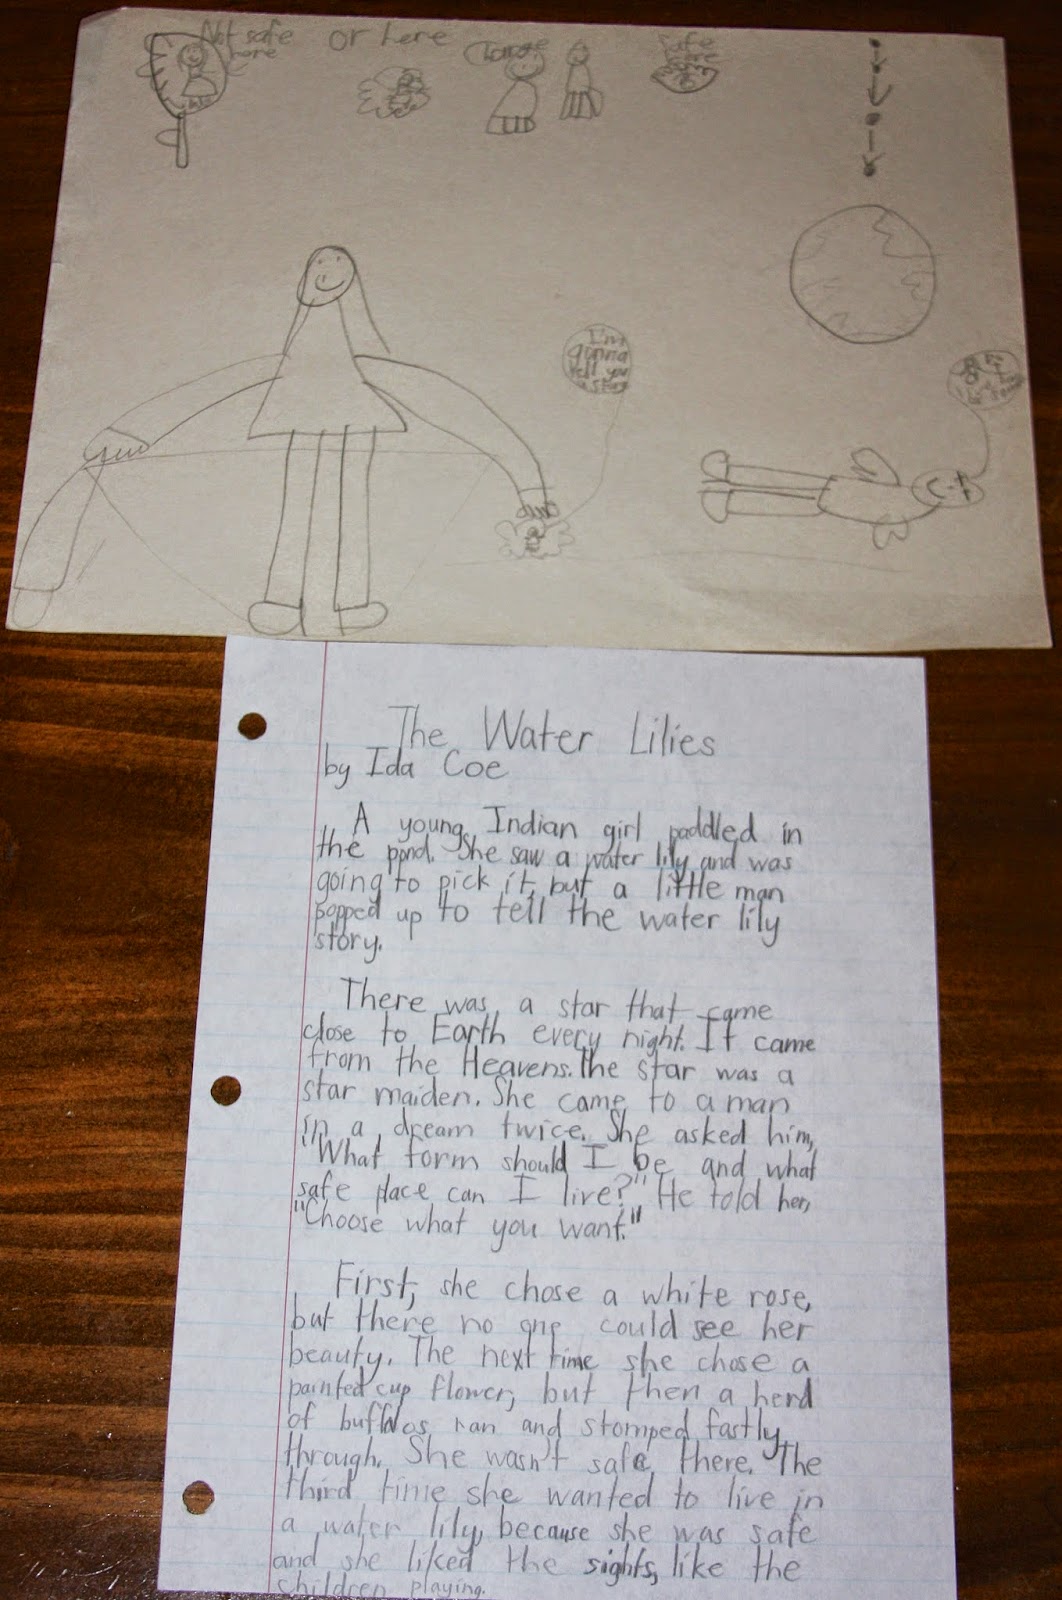 Not safe
here
or here
Change
safe
I'm
gonna
tell you
a story
The Water Lilies
by Ida Coe
A young Indian girl paddled in
the pond. She saw a water lily and was
going to pick it, but a little man
popped up to tell the water lily
story.
There was a star that came
close to Earth every night. It came
from the Heavens. The star was a
star maiden. She came to a man
in a dream twice. She asked him,
"What form should I be and what
safe place can I live?" He told her,
"Choose what you want."
First, she chose a white rose,
but there no one could see her
beauty. The next time she chose a
painted cup flower, but then a herd
of buffalos ran and stomped fastly
through. She wasn't safe there. The
third time she wanted to live in
a water lily, because she was safe
and she liked the sights, like the
children playing.